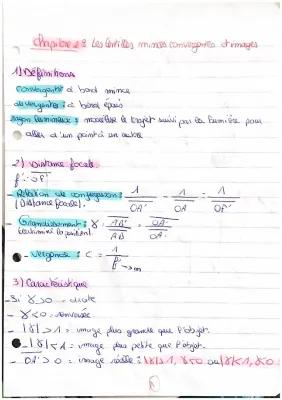 Chapitre 2 : Les lentilles minces convergentes et images
1) Définitions
convergente : à bord mince
divergente : à bord épais
rayon lumineux : modélise le trajet suivi par la lumière pour
aller d'un point à un autre
2) Distance focale
f' = OF'
Relation de conjugaison : 1/OF' = 1/OA' - 1/OA
(Distance focale).
Grandissement : γ = A'B'/AB = OA'/OA
- Vergence : C = 1/f' → m
3) Caractéristique
- Si γ > 0 = droite
- γ < 0 = renversée
- |γ| > 1 = image plus grande que l'objet.
- |γ| < 1 = image plus petite que l'objet.
- OA' > 0 = image réelle : |γ| > 1, γ < 0 ou |γ| < 1, γ < 0